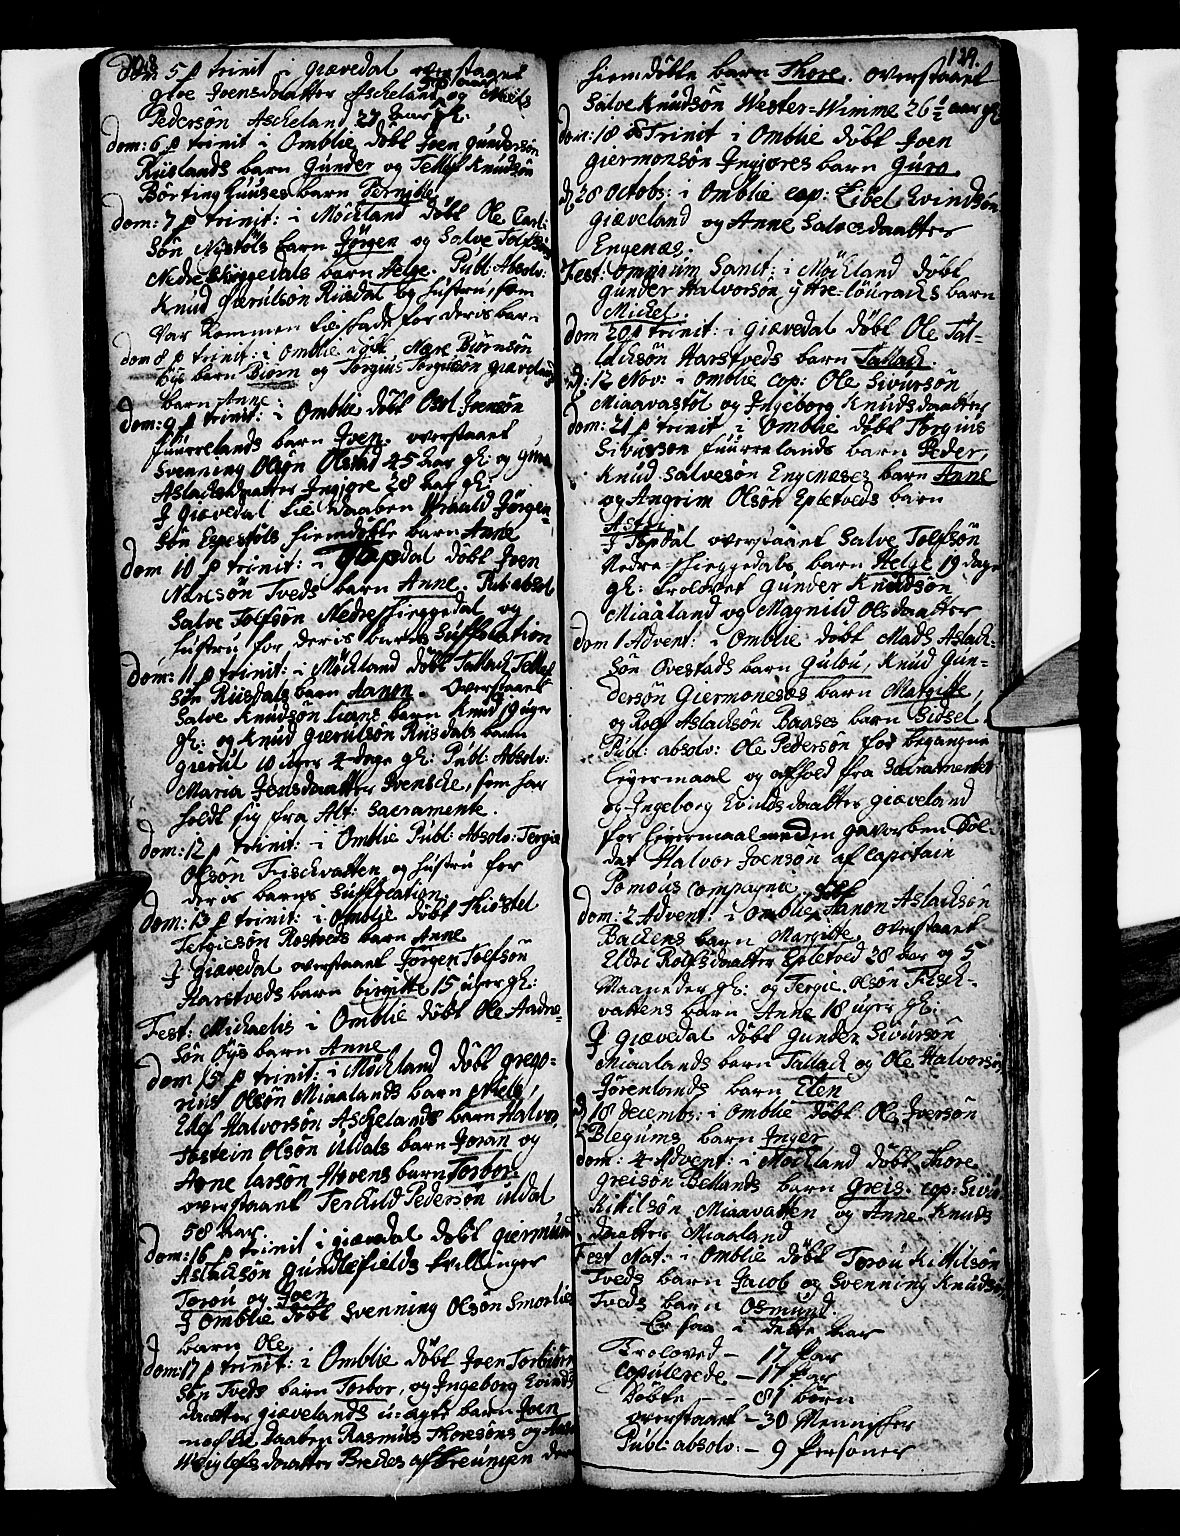 128
Dom 5 p trinit i giævedal overstaaet
gloe Joensdaatter Ascheland og Niels
Pedersøn Ascheland 27 Aar gl:
dom: 6 p trinit i Omblie døbt Joen Gundersøn
Riislands barn Gunder og Tellef Knudsøn
Børting huuses barn Pernille
dom: 7 p trinit: i Mòckland døbt Ole Carl-
søn Nystøls barn Jørgen og Salve Tolfsøns
Nedre barn Helge. Publ: Absolv:
Knud Gierulsøn Riisdal og hustru, som
var kommen til skade for deris barn
dom 8 p trinit: i Omblie Aare Biørnsøn
barn Biørn og Torgius Torgiusøn giævelands
barn Anne.
dom: 9 p trinit: i Omblie døbt Osol Joensøn
fuurelands barn Joen. overstaaet
Svenning Olsøn Olstad 45 Aar gl: og
Aslachsdaatter Ingiøre 28 Aar gl:
J giævedal til daaben Jørgen-
søn Espestøls hiemdøbte barn Anne
dom 10 p trinit: i døbt Joen
Nærsøn Tveds barn Anne. Publ: absol:
Salve Tolfsøn Nedre og
hustru for deris barns Suffocation
dom: 11 p trinit: i Mòckland døbt Tallack Tellef
søn Riisdals barn Aanon. Overstaaet
Salve Knudsøn lians barn Knud 19 uger
gl: og Knud gierulsøn Riisdals barn
gierul 10 uger 4 dage gl: Publ: Absolv:
Maria Jensdaatter Svensche, som har
holdt sig fra Alt: Sacramente.
dom: 12 p trinit: i Omblie Publ: Absolv: Tergie
Olsøn Fischvatten og hustru for
deris barns Suffocation.
dom: 13 p trinit: i Omblie døbt Thiøstel
Tergiesøn Rostveds barn Anne
J giævedal overstaaet Jørgen Tolfsøn
Harstveds barn birgitte 15 uger gl:
Fest: Michaelis i Omblie døbt Ole Aadne-
søn Øys barn Anne
dom 15 p trinit: i Mòckland døbt grego-
rius Olsøn Miaalands barn Niels,
Ellef Halvorsøn Aschelands barn Halvo,
Tostein Olsøn Uldals barn Joran og
Arne larsøn Hovens barn Torbor.
overstaaet Terkild Pedersøn uldal
58 Aar
dom: 16 p trinit i giævedal døbt giermund
Aslachsøn gundlefields tvillinger
Torou og Joen
J Omblie døbt Svenning Olsøn Smorlies
barn Ole
dom: 17 p trinit: i Omblie døbt Joen Torbiørn
søn Tveds barn Torbor, og Ingeborg Evinds
daatter giævelands u:ægte barn Joen
noch til daaben Rasmus Thoresøns og
daatter Bredes af Treungen deres
129.
hiemdøbte barn Thore. overstaaet
Salve Knudsøn Wester-Wimme 26 1/2 aar gl
dom: 18 p Trinit i Omblie døbt Joen
giermonsøn Ingiøres barn Guro.
d 28 Octobr: i Omblie cop: Libel Evindsøn
giæveland og Anne Salvesdaatter
Engenæs.
Fest: omnium Sanct: i Mòckland døbt
gunder Halvorsøn yttre-løuraaes barn
Mickel.
dom 20 p trinit: i giævedal døbt Ole Tal-
lachsøn Harstveds barn Tallack.
d: 12 Nov: i Omblie cop: Ole Sivursøn
Miaavastøl og Ingeborg Knudsdaatter
dom: 21 p trinit i Omblie døbt Torgius
Sivursøn fuurrelands barn Peder,
Knud Salvesøn Engenæses barn Anne
og Angrim Olsøn Epletveds barn
Asten.
J Topdal overstaaet Salve Tolfsøn
Nedre barn Helge 19 dage
gl: trolovet gunder Knudsøn
Miaaland og Magnild Olsdaatter
dom 1 Advent: i Omblie døbt Mads Aslack-
søn Ovestads barn Gulou, Knud Gun-
dersøn Giermonesæs barn Margitte,
og Rolf Aslachsøn Baases barn Sidsel.
Publ: absolv: Ole Pedersøn for begangne
leyermaal og afhold fra Sacramentet
og Ingeborg Evindsdaatter giæveland
for leyermaal med en gevorben Sol-
dat Halvor Joensøn af Capitain
Pomous Compagnie.
dom: 2 Advent: i Omblie døbt Aanon Aslachsøn
Backens barn Margitte. overstaaet
Eldri Rolfsdaatter Epletved 28 Aar og 5
Maaneder gl: og Tergie Olsøn Fisch-
vattens barn Anne 18 uger gl:
J giævedal døbt gunder Sivursøn
Miaalands barn Tallack og Ole Halvorsøn
Jørenlands barn Elen
d 18 decembr: i Omblie døbt Ole Iversøn
Blegums barn Inger
dom: 4 Advent: i Mòckland døbt Thore
greisøn Bellands barn Greis. cop: Sivur
Kittilsøn Miaavatten og Anne Knuds
daatter Miaaland
Fest Nat: i Omblie døbt Torou Kittilsøn
Tveds barn Jacob og Svenning Knudsøn
Tveds barn Osmund.
Er saa i dette Aar
Troloved - 17 Par
Copulerede - 17 Par
Døbte - - 81 børn
overstaaet - 30 Mennisker
Publ: absolv: - 9 Personer